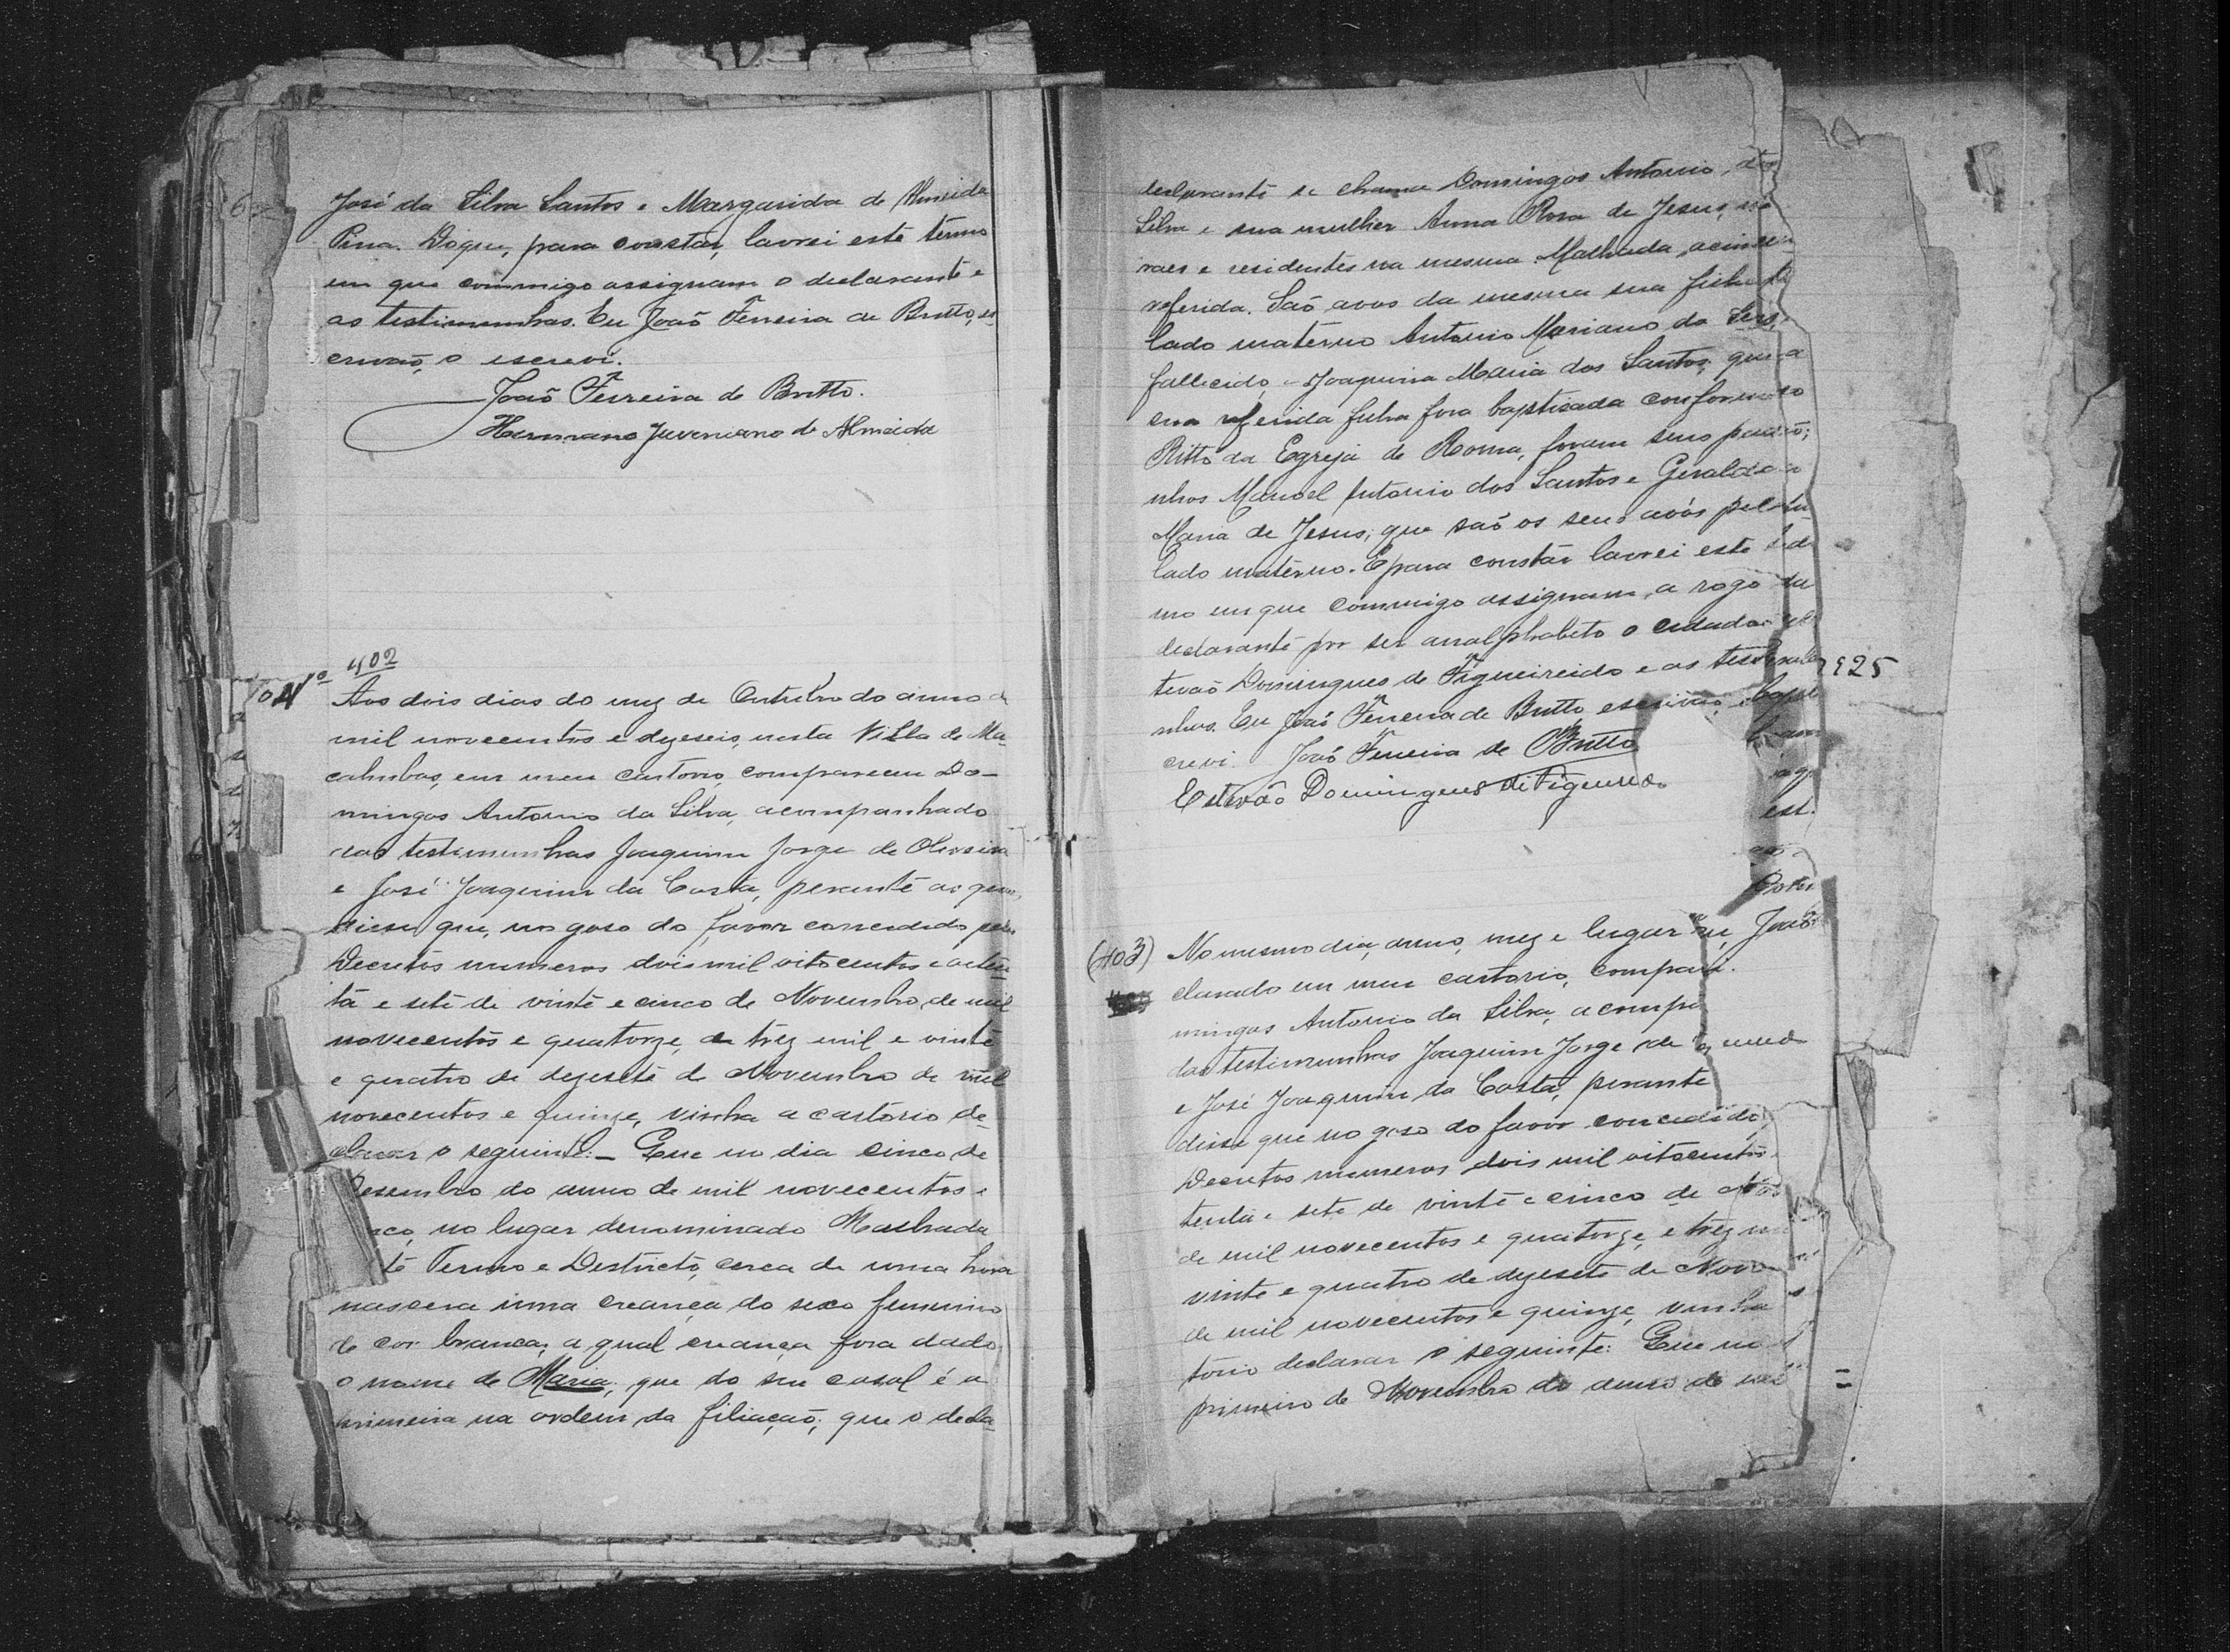 José da Silva Santos e Margarida de Almeida
Pina. Do que, para constar, lavrei este têrmo
em que commigo assignam o declarante e
as testimunhas. Eu João Ferreira de Britto, es
crivão, o escrevi.
João Ferreira de Britto.
Hermano Juveniano de Almeida
Nº 402
Aos dois dias do mez de Outubro do anno
mil novecentos e dezeseis, nesta Villa de Ma-
cahubas, em meu cartorio, compareceu Do-
mingos Antonio da Silva, acompanhado
das testimunhas Joaquim Jorge de Oliveira
e José Joaquim da Costa, perante as
disse que, no goso do favor concedido
Decretos numeros dois mil oitocentos e oiten
ta e sete de vinte e cinco de Novembro, de mil
novecentos e quatorze, e trez mil e vinte
e quatro de dezesete de Novembro de mil
novecentos e quinze, vinha a cartório de-
clarar o seguinte: – Que no dia cinco de
Desembro do anno de mil novecentos e
no lugar denominado Malhada
Termo e Destricto, cerca de uma hora
nascera uma creança do sexo feminino
de cor branca, a qual creança fora dado
o nome de Maria; que do seu casal é a
primeira na ordem da filiação; que o decla-
declarante se chama Domingos Antonio, da
Silva e sua mulher Anna Rosa de Jesus,
raes e residentes na mesma Malhada, acima
referida. São avos da mesma sua filha
lado materno Antonio Mariano da
fallecido, e Joaquina Maria dos Santos; que a
sua referida filha fora baptisada conforme o
Ritto da Egreja de Roma, foram seus padri-
nhos Manoel Antonio dos Santos e Geralda
Maria de Jesus; que são os seus avós pelo
lado matérno. E para constar lavrei este
mo em que commigo assignam, a rogo do
declarante por ser analphabeto o cidadão
tevão Domingues de Figueireido e as testimu
nhas. Eu João Ferreira de Britto escrivão
crevi. João Ferreira de Britto
Estevão Domingues de Figueredo
925
(403)
No mesmo dia, anno, mez e lugar
clarado em meu cartorio, compare
mingos Antonio da Silva, acompa
das testimunhas Joaquim Jorge de
e José Joaquim da Costa, perante
disse que no goso do favor concedido
Decretos numeros dois mil oitocentos
tenta e sete de vinte e cinco de
de mil novecentos e quatorze, e trez
vinte e quatro de dezesete de Novem
de mil novecentos e quinze, vinha
tório declarar o seguinte: Que no
primeiro de Novembro do anno de mil